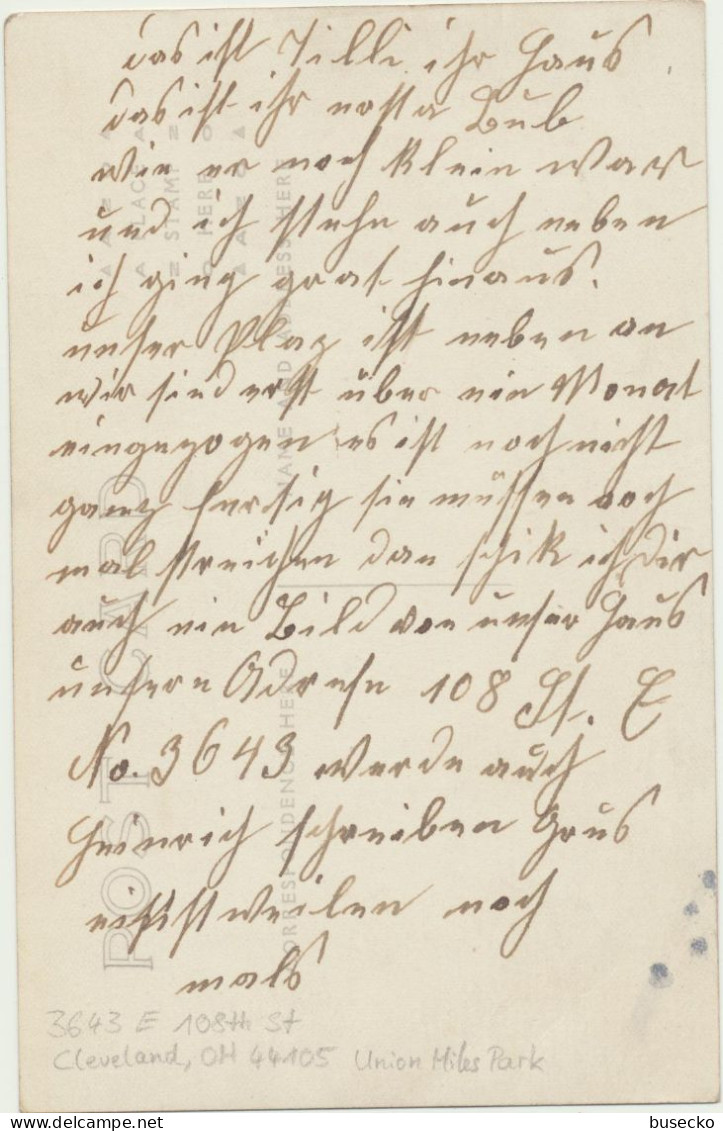 das ist Tilli ihr Haus
das ist ihr Bub
wie er noch klein war
und ich stehe auch neben
ich ging grat hinaus.
unser Plaz ist neben an
wir sind erst über ein Monat
eingezogen es ist noch nicht
ganz fertig sie müssen noch
mal streichen dan schik ich dir
auch ein Bild von unser Haus
unsere Adrese 108 St. E
No. 3643 werde auch
Heinrich schreiben Grus
weilen noch
mals
3643 E 108th St
Cleveland, OH 44105 Union Miles Park
POST CARD
PLACE
STAMP
HERE
NAME AND ADDRESS HERE
CORRESPONDENCE HERE
busecko